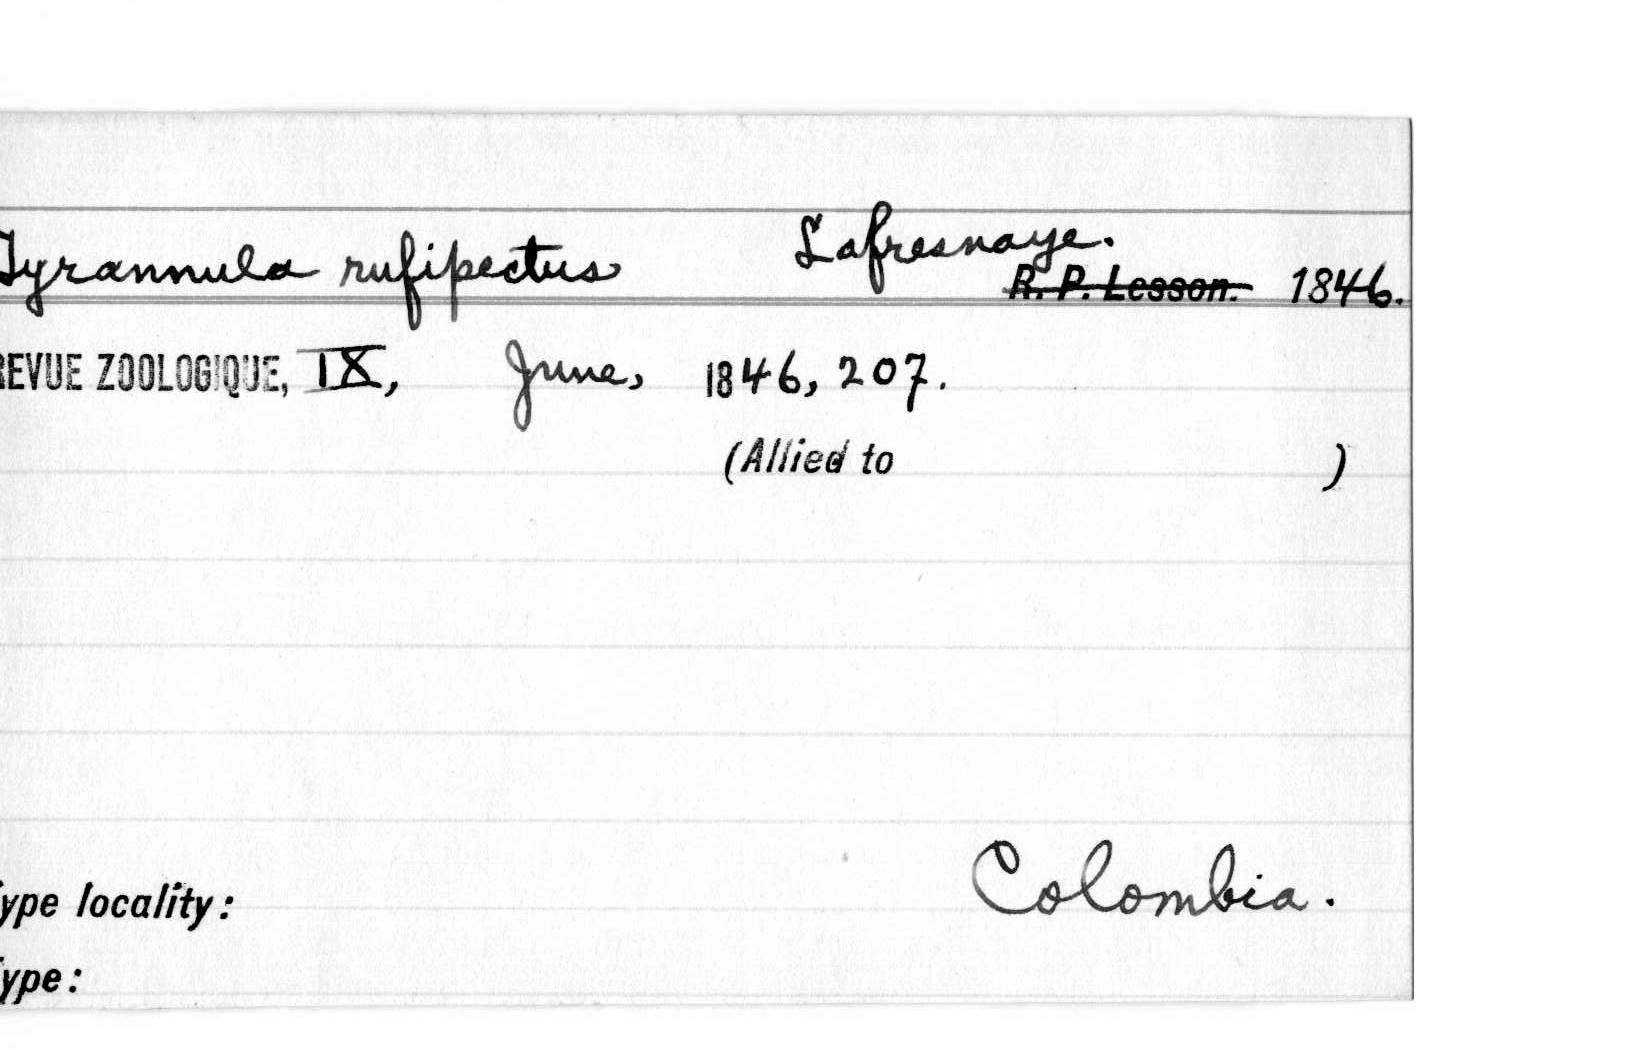 Tyrannula rufipectus Lafresnaye.
R. P. Lesson. 1846.
REVUE ZOOLOGIQUE, IX, June, 1846, 207.
(Allied to )
Colombia.
Type locality:
Type: